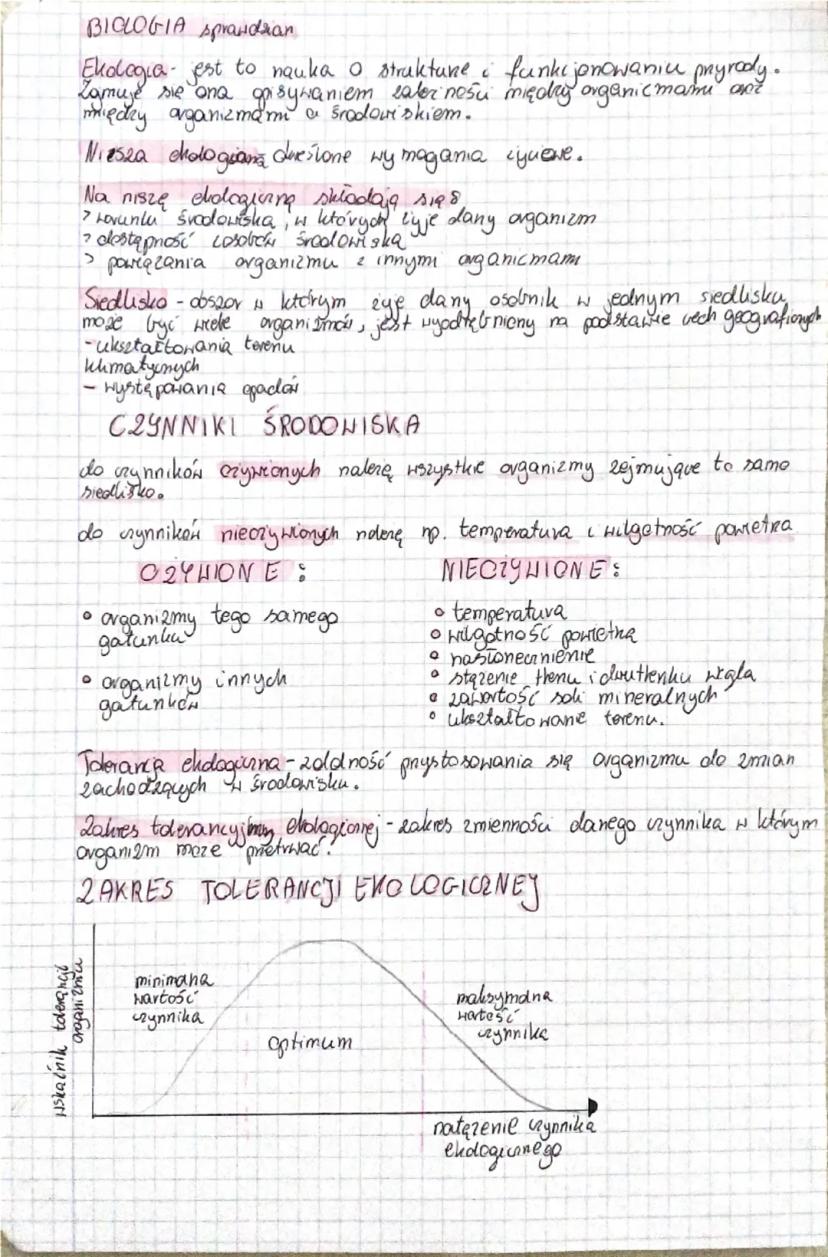 BIOLOGIA sprawdzian
Ekologia - jest to nauka o strukturze i funkcjonowaniu przyrody.
Zajmuje się ona opisywaniem zależności między organizmami oraz
między organizmami a środowiskiem.
Nisza ekologiczna określone wymagania życiowe.
Na niszę ekologiczną składają się:
> warunki środowiska, w których żyje dany organizm
> dostępność zasobów środowiska
> powiązania organizmu z innymi organizmami
Siedlisko - obszar w którym żyje dany osobnik w jednym siedlisku
może być wiele organizmów, jest wyodrębniony na podstawie cech geograficznych
- ukształtowania terenu
klimatycznych
- występowania opadów
CZYNNIKI ŚRODOWISKA
do czynników ożywionych należą wszystkie organizmy zejmujące to samo
siedlisko.
do czynników nieożywionych należą np. temperatura i wilgotność powietrza
OŻYWIONE: NIEOŻYWIONE:
• organizmy tego samego
gatunku
• organizmy innych
gatunków
• temperatura
• wilgotność powietrza
• nasłonecznienie
• stężenie tlenu i dwutlenku węgla
• zawartość soli mineralnych
• ukształtowanie terenu.
Tolerancja ekologiczna - zdolność przystosowania się organizmu do zmian
zachodzących w środowisku.
Zakres tolerancyjny ekologicznej - zakres zmienności danego czynnika w którym
organizm może przetrwać.
ZAKRES TOLERANCJI EKOLOGICZNEJ
wskaźnik tolerancji
organizmu
minimalna
wartość
czynnika
optimum
maksymalna
wartość
czynnika
natężenie czynnika
ekologicznego